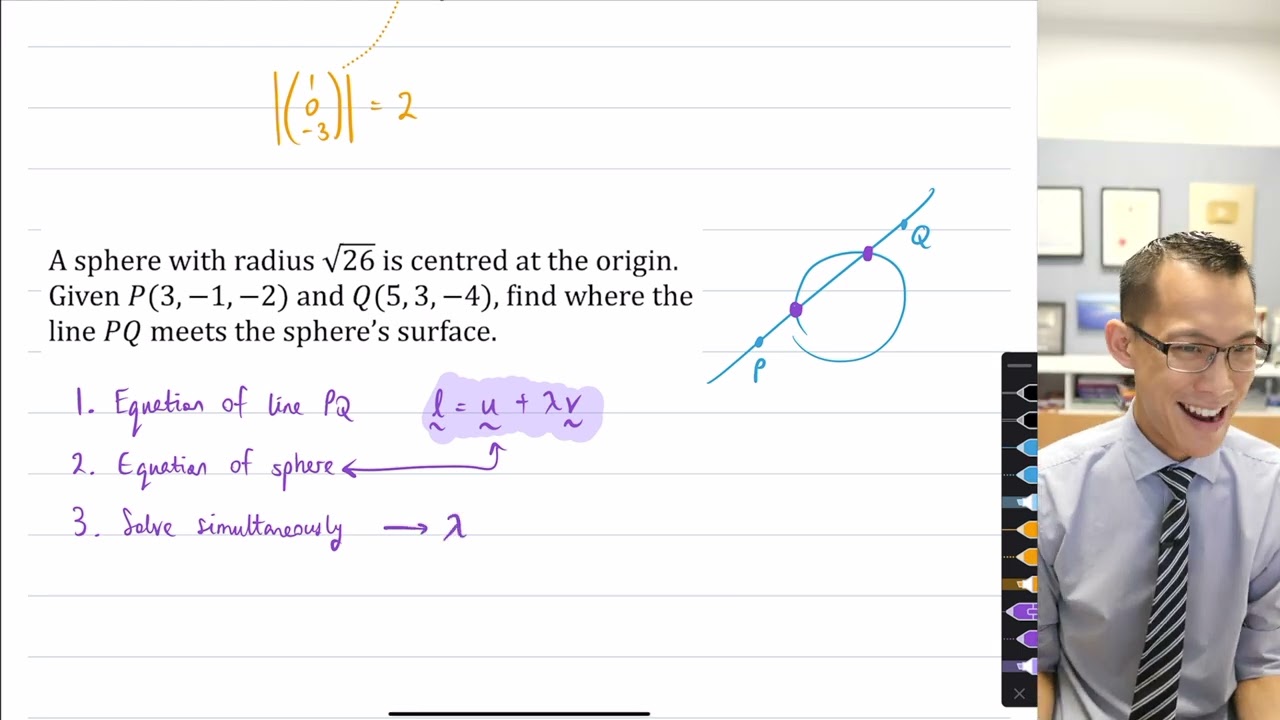 |(1 0 -3)| = 2
A sphere with radius √26 is centred at the origin.
Given P(3, −1, −2) and Q(5, 3, −4), find where the
line PQ meets the sphere's surface.
1. Equation of line PQ l = u + λv
2. Equation of sphere
3. Solve simultaneously → λ
Q
P